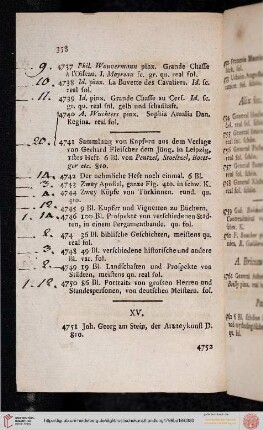 358
9. 4737 Phil. Wouvermann pinx. Grande Chasse
à l'Oiseau. J. Moyreau sc. gr. qu. real fol.
10. 4738 Id. pinx. La Buvette des Cavaliers. Id. sc.
real fol.
11. 4739 Id. pinx. Grande Chasse au Cerf. Id. sc.
gr. qu. real fol. gelb und schadhaft.
4740 A. Wuchters pinx. Sophia Amalia Dan.
Regina. real fol.
20. 4741 Sammlung von Kupfern aus dem Verlage
von Gerhard Fleischer dem Jüng. in Leipzig,
1stes Heft 6 Bl. von Penzel, Stoelzel, Boett-
ger etc. gro.
4742 Der nehmliche Heft noch einmal. 6 Bl.
3. 4743 Zwey Apostel, ganze Fig. 4to. in schw. K.
4744 Zwey Köpfe von Türkinnen. rund. qu.
gro.
4745 9 Bl. Kupfer und Vignetten zu Büchern.
4746 100 Bl. Prospekte von verschiedenen Städ-
ten, in einem Pergamentbande. qu. fol.
2. 474 36 Bl. biblische Geschichten, meistens qu.
real fol.
3. 4748 49 Bl. verschiedene historische und andere
Bl. var. fol.
2. 4749 19 Bl. Landschaften und Prospekte von
Städten, meistens qu. real fol.
1.12. 4750 86 Bl. Portraits von grossen Herren und
Standespersonen, von deutschen Meistern. fol.
XV.
4751 Joh. Georg am Stein, der Arzneykunst D.
gro.
4752